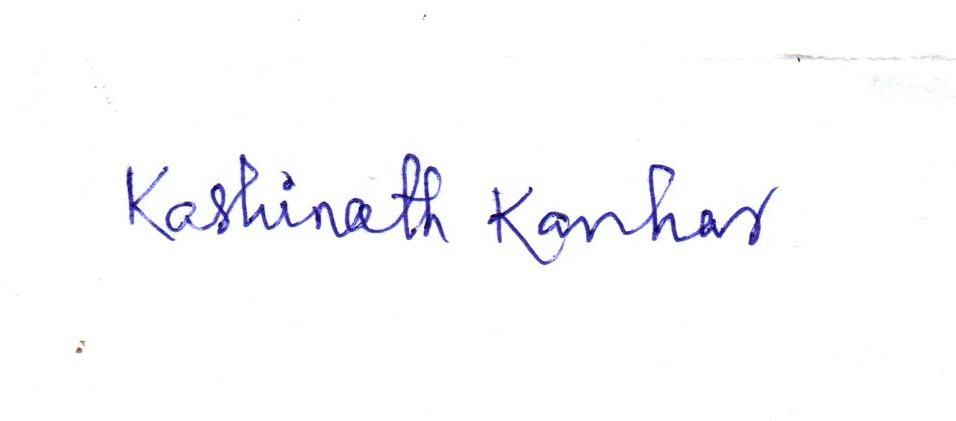 Kashinath Kanhar